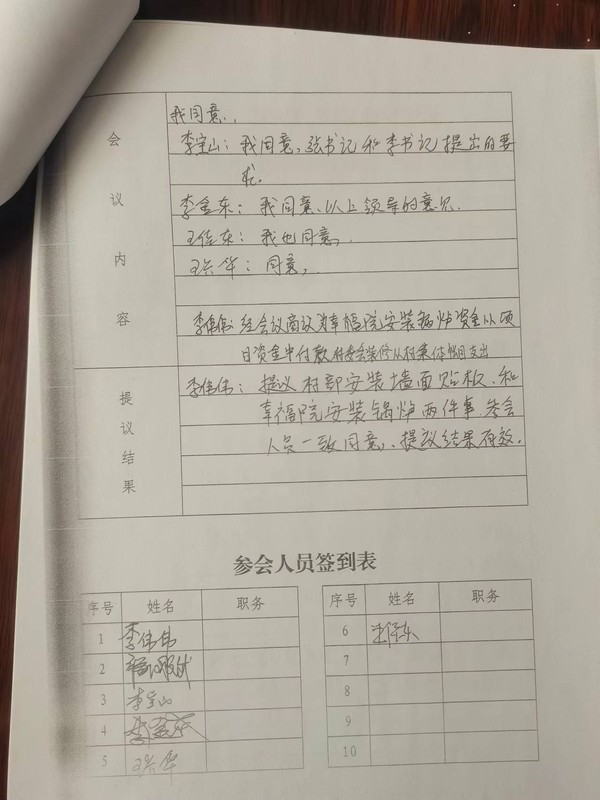 会议内容
我同意.
李宝山：我同意，张书记和李书记提出的要
求.
李金东：我同意、以上领导的意见.
王佳东：我也同意.
王兴华：同意.
李伟伟：经会议商议为幸福院安装锅炉资金从项
目资金中付款 村委会装修从村集体账目支出
提议结果
李伟伟：提议村部安装墙面贴板、和
幸福院安装锅炉两件事.参会
人员一致同意、提议结果有效.
参会人员签到表
序号 姓名 职务 序号 姓名 职务
1 李伟伟 6
2 7
3 李宝山 8
4 李金东 9
5 王兴华 10